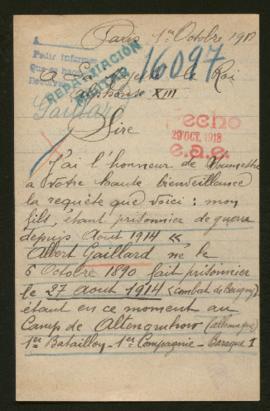 Paris 1er Octobre 1918
A
16097
REPATRIACIÓN
MILITAR
Gaillard
A Sa Majesté le Roi
Alphonse XIII
Sire
echo
29 OCT. 1918
e.a.e.
J'ai l'honneur de soumettre
a votre haute bienveillance
la requête que voici : mon
fils, étant prisonnier de guerre
depuis Aout 1914 "
Albert Gaillard né le
6 Octobre 1890 fait prisonnier
le 27 Aout 1914 (combat de
étant en ce moment au
Camp de Altengrabow (allemagne)
1er Bataillon - 1ere Compagnie - Baraque 1